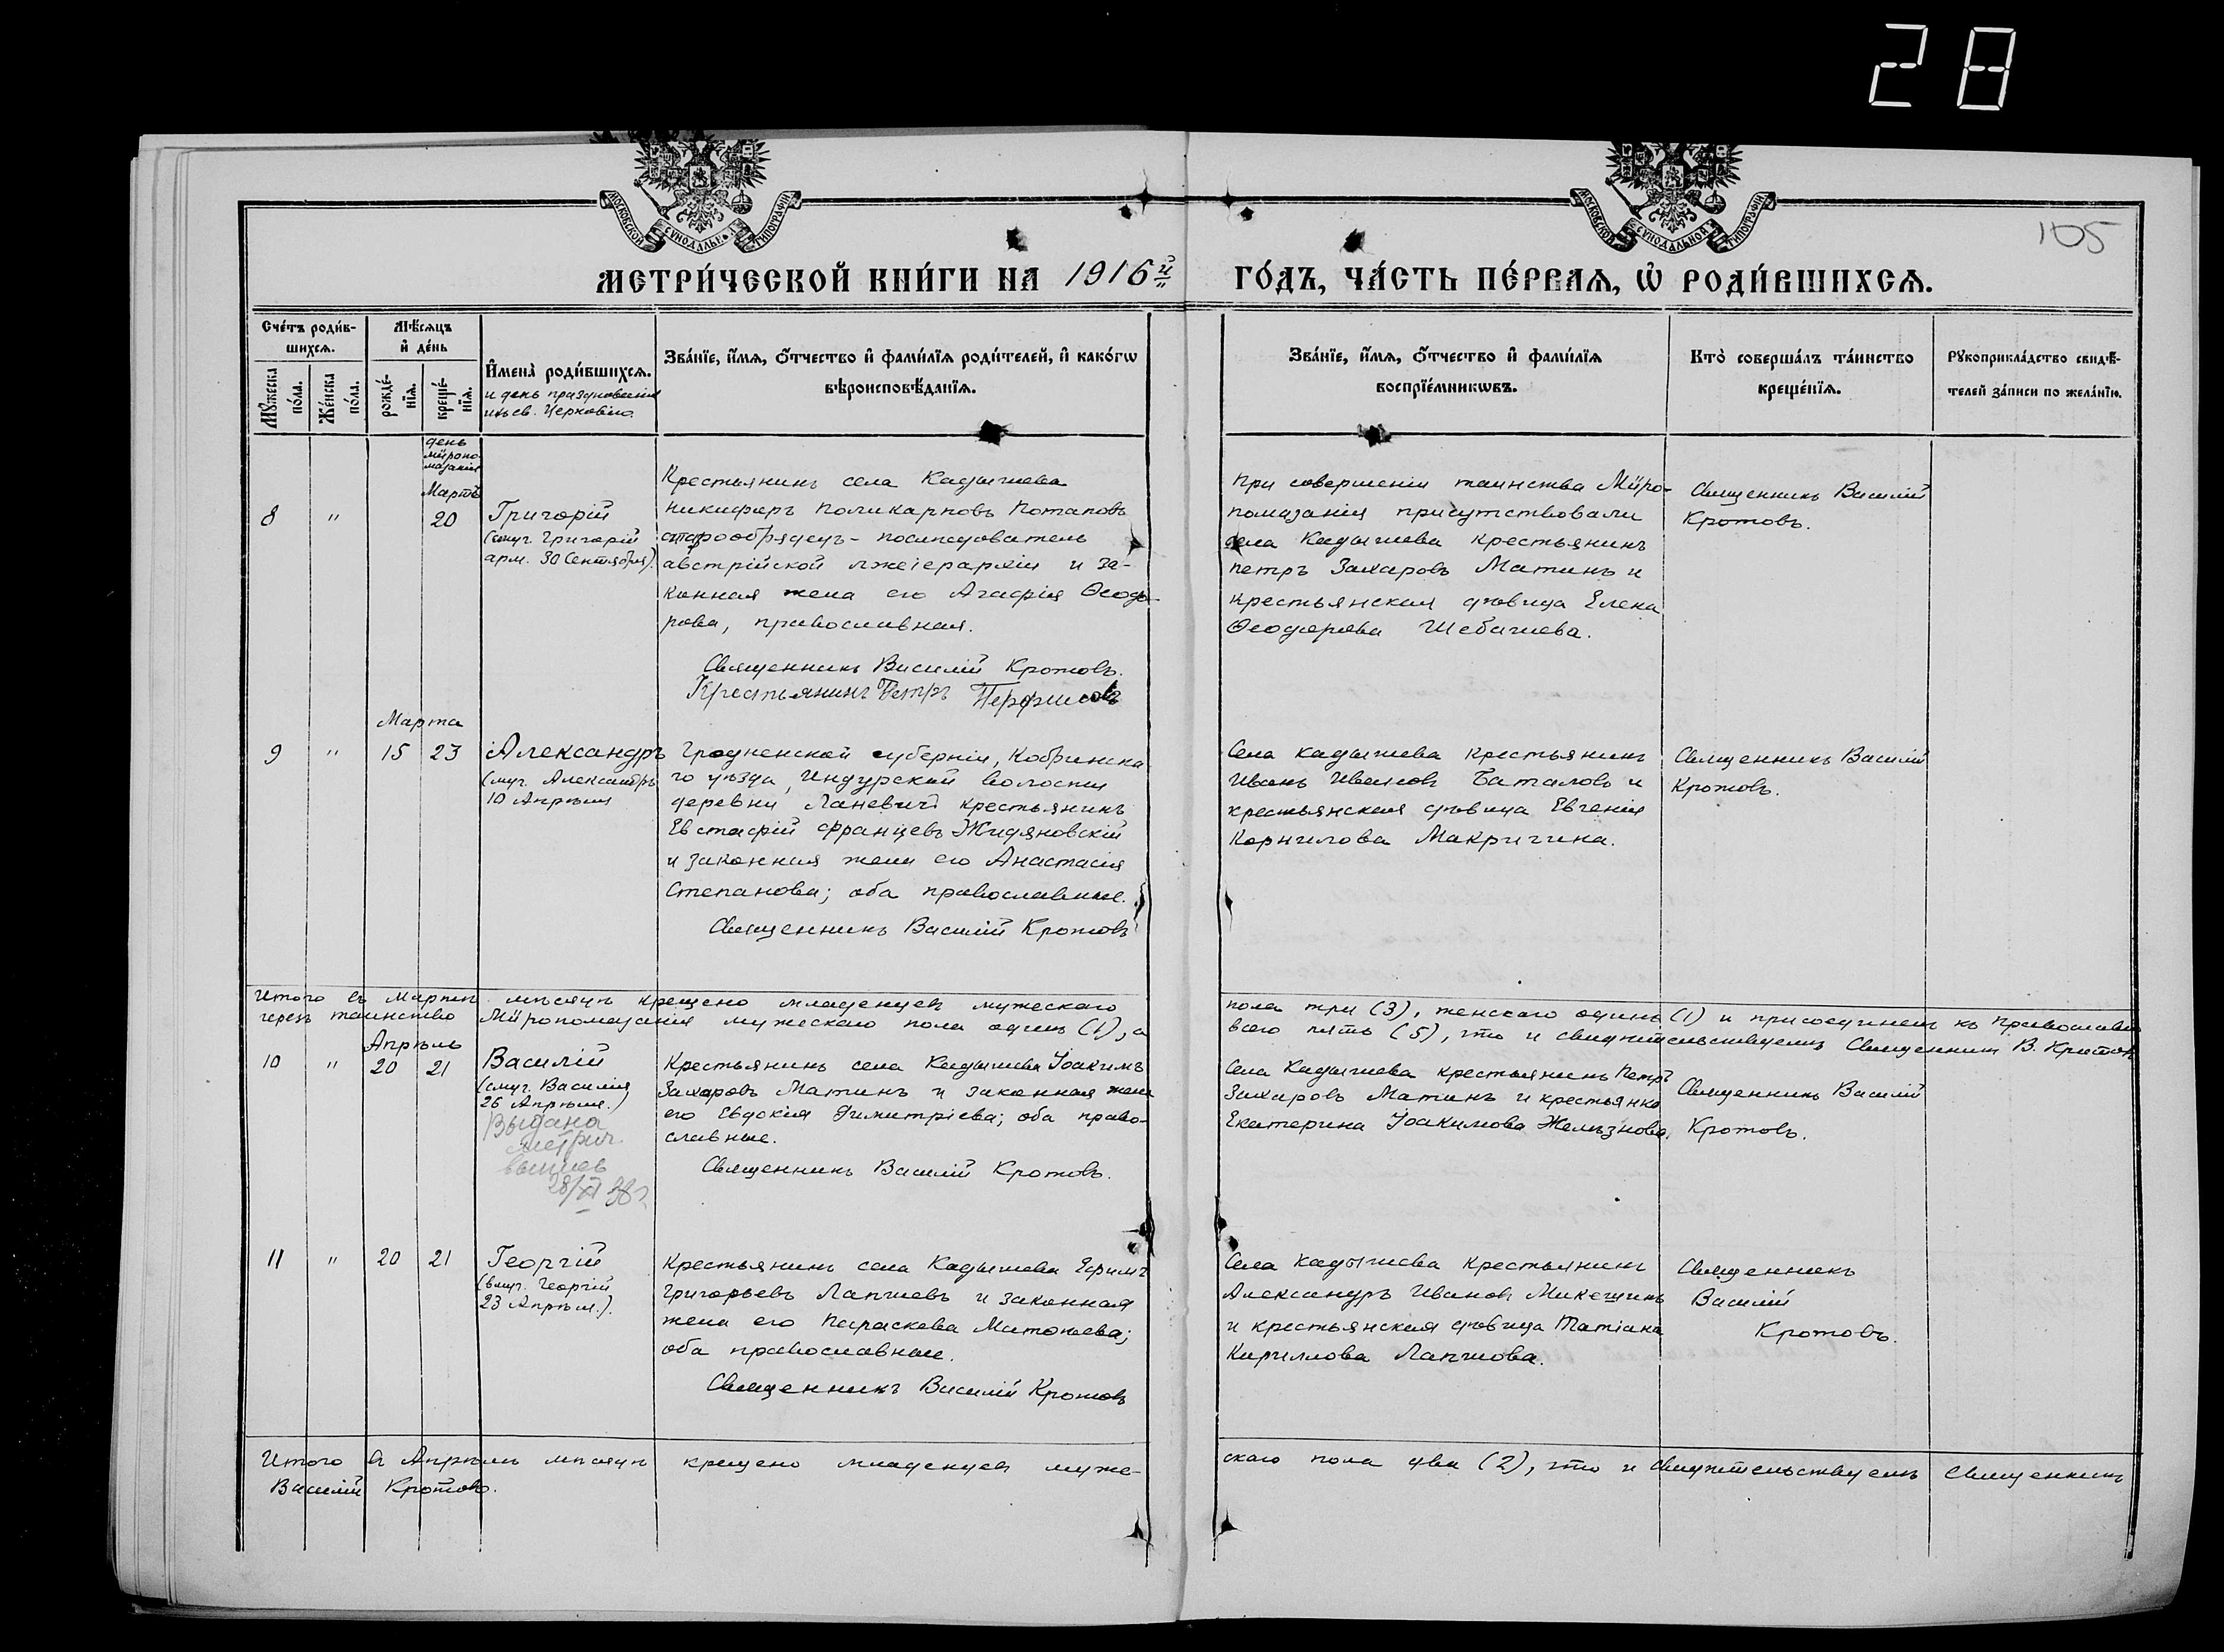 28
105
МОСКОВСКОЙ СѴНОДАЛЬНОЙ ТИПОГРАФІИ
МОСКОВСКОЙ СѴНОДАЛЬНОЙ ТИПОГРАФІИ
МЕТРИ́ЧЕСКОЙ КНИ́ГИ НА 1916й ГО́ДЪ, ЧА́СТЬ ПЕ́РВАѦ, Ѡ҆ РОДИ́ВШИХСѦ.
Сче́тъ роди́в-
шихсѧ.
Мꙋ́жеска по́ла.
Же́нска по́ла.
Мѣ́сѧцъ
и҆ де́нь
рожде́-
нїѧ.
креще́-
нїѧ.
И҆мена̀ роди́вшихсѧ.
и день празднованія
ихъ св. Церковію
Зва́нїе, и҆́мѧ, ѻ҆́тчество и҆ фами́лїѧ роди́телей, и҆ како́гѡ
вѣроисповѣ́данїѧ.
Зва́нїе, и҆́мѧ, ѻ҆́тчество и҆ фами́лїѧ
воспрїе́мникѡвъ.
Кто̀ соверша́лъ та́инство
креще́нїѧ.
Рꙋкоприкла́дство свидѣ́-
телей за́писи по жела́нїю.
день
мѵропо-
мазанія
Мартъ
8 " 20
Григорій
(смуч. Григорій
арм. 30 Сентября).
Крестьянинъ села Кадышева
Никифоръ Поликарповъ Потаповъ
старообрядецъ - последователь
австрійской лжеіерархіи и за-
конная жена его Агафія Ѳеодо-
рова, православная.
Священникъ Василій Кротовъ.
Крестьянинъ Петръ Перфиловъ
При совершеніи таинства Мѵро-
помазанія присутствовали
села Кадышева крестьянинъ
Петръ Захаровъ Матинъ и
крестьянская дѣвица Елена
Ѳеодорова Шебашева.
Священникъ Василій
Кротовъ.
Марта
9 " 15 23
Александръ
(муч. Александръ
10 Апрѣля
Гродненской губерніи, Кобринска
го уѣзда, Индурской волости
деревни Ланевичи крестьянинъ
Евстафій Францевъ Жидяновскій
и законная жена его Анастасія
Степанова; оба православные.
Священникъ Василій Кротовъ
Села Кадышева крестьянинъ
Иванъ Ивановъ Баталовъ и
крестьянская дѣвица Евгенія
Корнилова Макричина.
Священникъ Василій
Кротовъ.
Итого въ Мартѣ мѣсяцѣ крещено младенцевъ мужескаго пола три (3), женскаго одинъ (1) и присоединенъ къ Православію
черезъ таинство Мѵропомазанія мужескаго пола одинъ (1), а всего пять (5), что и свидѣтельствуемъ Священникъ В. Кротовъ
Апрѣль
10 " 20 21
Василій
(смуч. Василія
26 Апрѣля.)
Выдана
метрич.
28/XI 38г
Крестьянинъ села Кадышева Іоакимъ
Захаровъ Матинъ и законная жена
его Евдокія Димитріева; оба право-
славные.
Священникъ Василій Кротовъ.
Села Кадышева крестьянинъ Петръ
Захаровъ Матинъ и крестьянка
Екатерина Іоакимова Желѣзнова.
Священникъ Василій
Кротовъ.
11 " 20 21
Георгій
(вмуч. Георгій
23 Апрѣля.).
Крестьянинъ села Кадышева Ефимъ
Григорьевъ Лапшевъ и законная
жена его Параскева Матѳѣева;
оба православные.
Священникъ Василій Кротовъ
Села Кадышева крестьянинъ
Александръ Ивановъ Микешинъ
и крестьянская дѣвица Татіана
Кириллова Лапшова.
Священникъ
Василій
Кротовъ.
Итого въ Апрѣлѣ мѣсяцѣ крещено младенцевъ муже-
скаго пола два (2), что и свидѣтельствуемъ Священникъ
Василій Кротовъ.